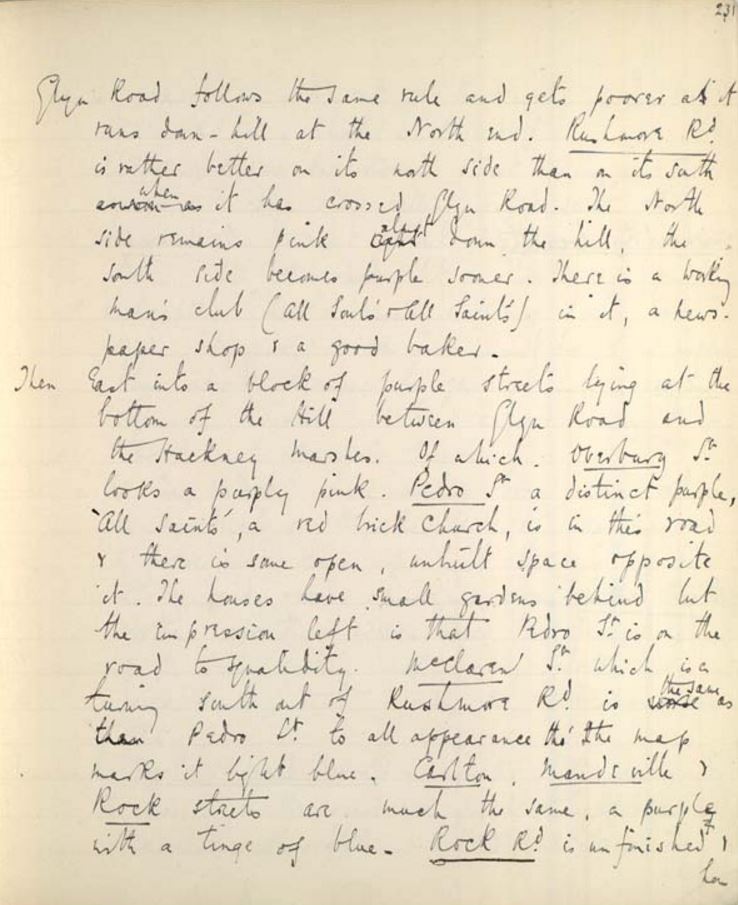 231
Glyn Road follows the same rule and gets poorer as it
runs down-hill at the North end. Rushmore Rd.
is rather better on its north side than on its south
when it has crossed Glyn Road. The North
side remains pink almost down the hill, the
south side becomes purple sooner. There is a working
man's club (All Souls' & All Saints') in it, a news-
paper shop & a good baker.
Then East into a block of purple streets lying at the
bottom of the Hill between Glyn Road and
the Hackney marshes. Of which. Overbury St.
looks a purply pink. Pedro St. a distinct purple,
'All Saints', a red brick church, is in this road
& there is some open, unbuilt space opposite
it. The houses have small gardens behind but
the impression left is that Pedro St. is on the
road to squalidity. McClaren St. which is a
turning south out of Rushmore Rd. is the same as
Pedro St. to all appearance tho' the map
marks it light blue. Carlton, Mandeville &
Rock streets are much the same, a purple
with a tinge of blue. Rock Rd. is unfinished &